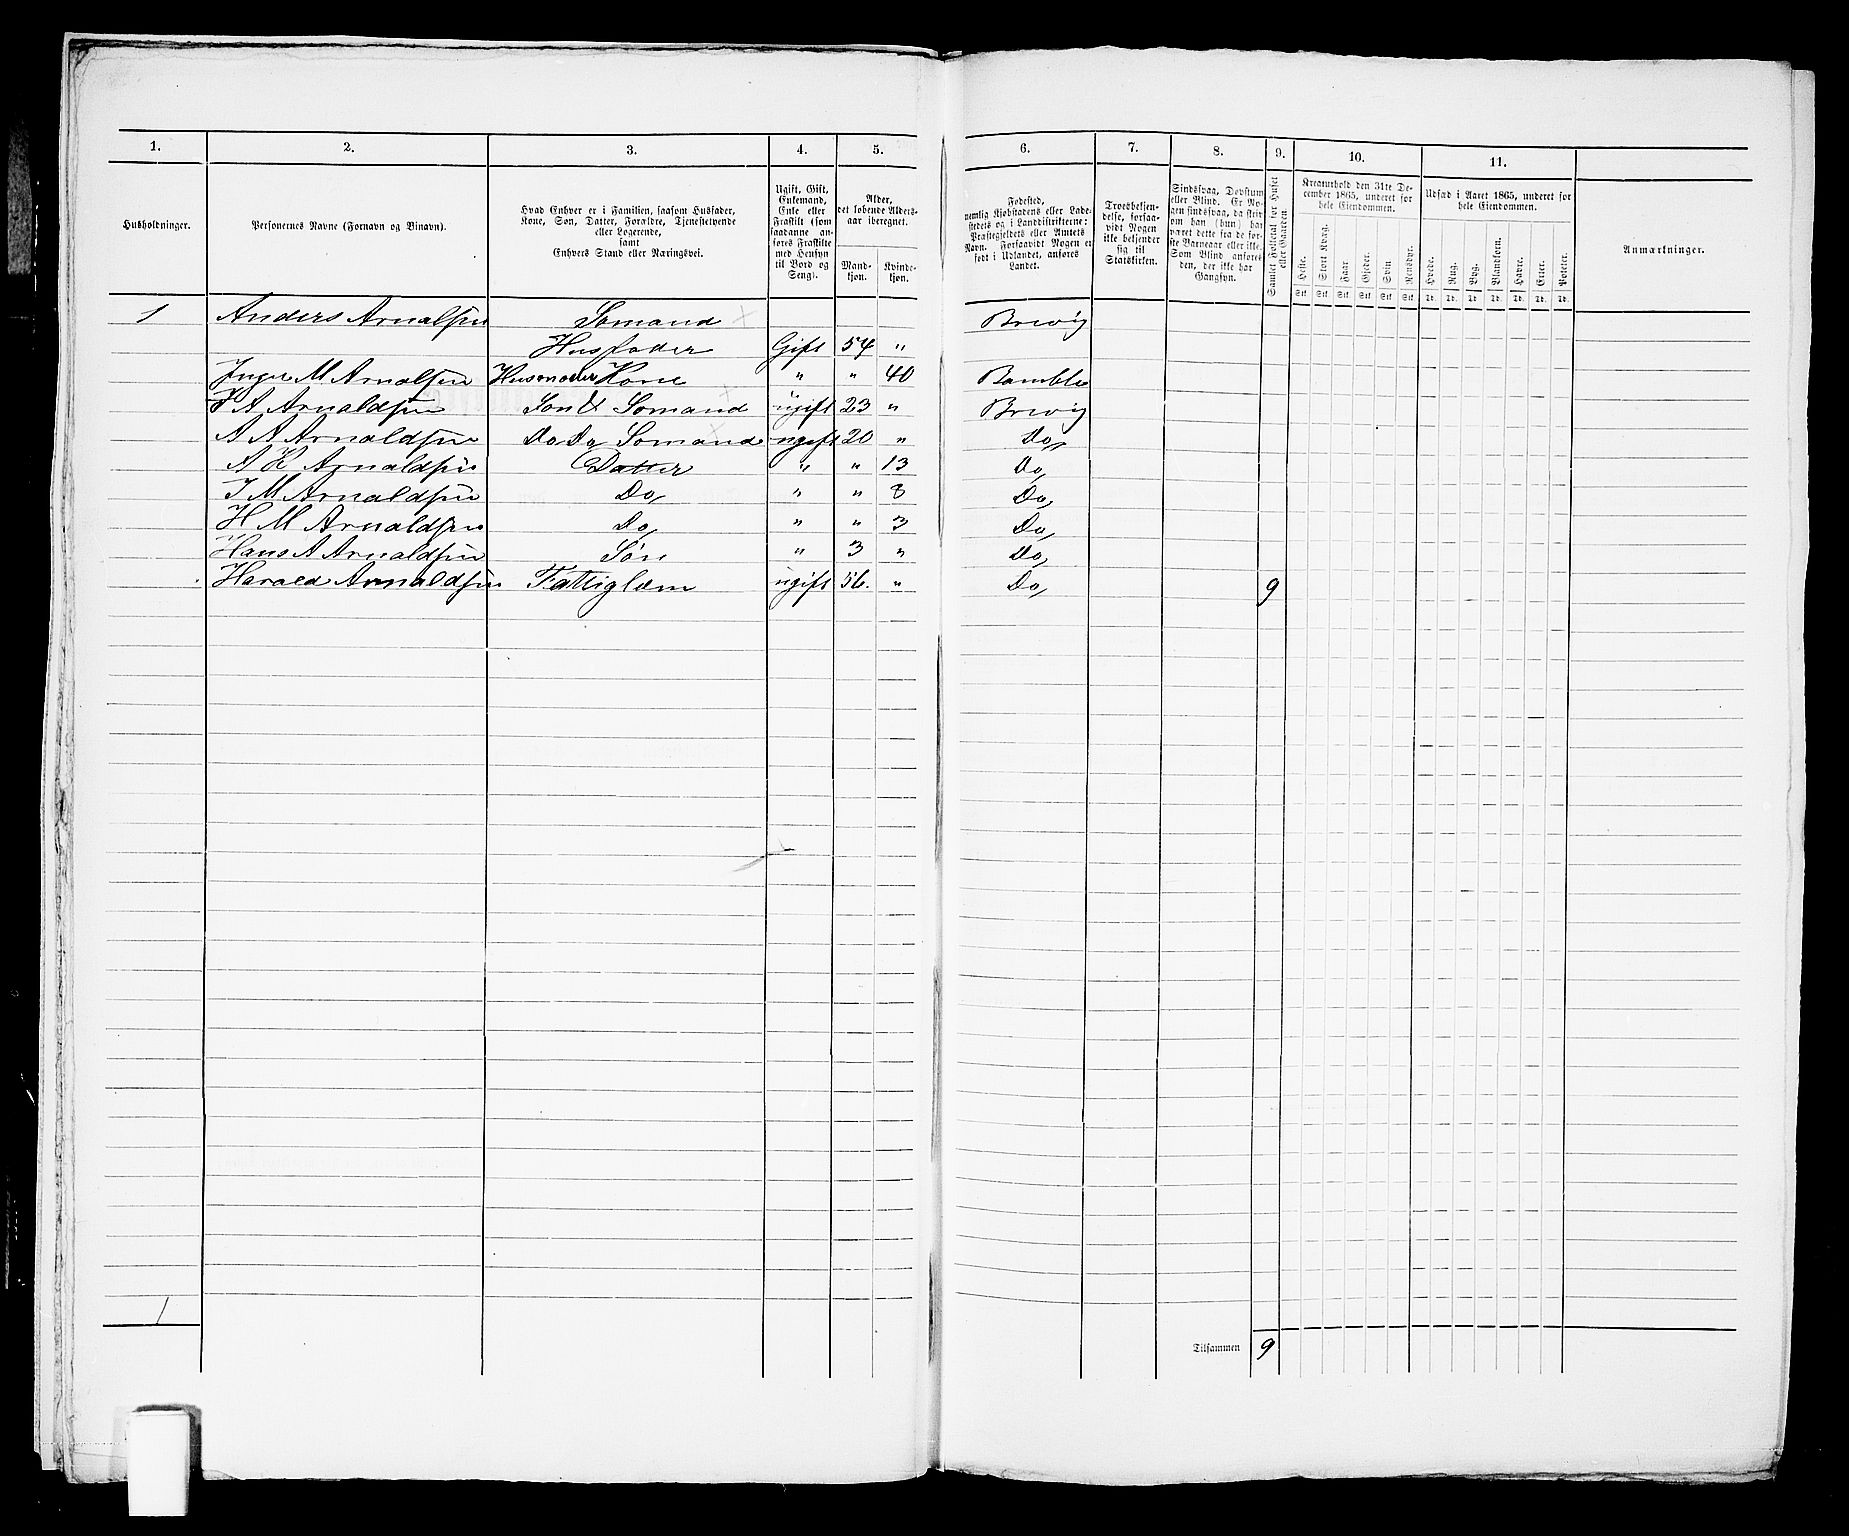 1. 2. 3. 4. 5. 6. 7. 8. 9. 10. 11.
Husholdninger.
Personernes Navne (Fornavn og Binavn).
Hvad Enhver er i Familien, saasom Husfader,
Kone, Søn, Datter, Forældre, Tjenestetyende
eller Logerende,
samt
Enhvers Stand eller Næringsvei.
Ugift, Gift,
Enkemand,
Enke eller
Fraskilt (som
saadanne an-
føres Fraskilte
med Hensyn
til Bord og
Seng).
Alder,
det løbende Alders-
aar iberegnet.
Mand-
kjøn.
Kvinde-
kjøn.
Fødested,
nemlig Kjøbstadens eller Lade-
stedets og i Landdistrikterne:
Præstegjeldets eller Amtets
Navn. Forsaavidt Nogen er
født i Udlandet, anføres
Landet.
Troesbekjen-
delse, forsaa-
vidt Nogen
ikke bekjender
sig til
Statskirken.
Sindssvag, Døvstum
eller Blind. Er No-
gen sindssvag, da skriv
om han (hun) har
været dette fra de før-
ste Barneaar eller ikke.
Som Blind anføres
den, der ikke har
Gangsyn.
Samlet Folketal for Huset
eller Gaarden.
Kreaturhold den 31te De-
cember 1865, underet for
hele Eiendommen.
Heste. Stort Kvæg. Faar. Gjeder. Svin. Rensdyr.
Stk Stk Stk Stk Stk Stk
Udsæd i Aaret 1865, underet for
hele Eiendommen.
Hvede. Rug. Byg. Blandkorn. Havre. Erter. Poteter.
Td. Td. Td. Td. Td. Td. Td.
Anmærkninger.
1 Anders Arnalsen Sømand Brevig
Husfader Gift 54 "
Inger M Arnalsen Husmoder Kone " " 40 Bamble
Arnaldsen Søn Sømand ugift 23 " Brevig
A A Arnaldsen Do Do Sømand ugift 20 " Do
A K Arnaldsen Datter " " 13 Do
I M Arnaldsen Do " " 8 Do
H M Arnaldsen Do " " 3 Do
Hans A Arnaldsen Søn " 3 " Do
Harald Arnaldsen Fattiglem ugift 56. " Do 9
1
Tilsammen 9